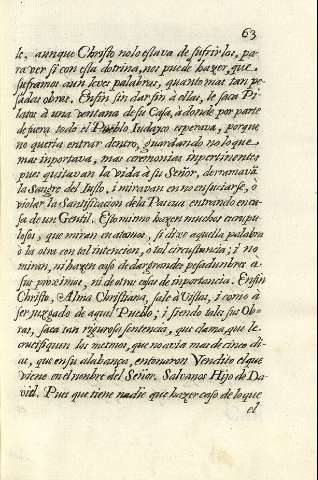 63
le, aunque Christo no lo estava de sufrirlos, pa-
ra ver si con esta dotrina, nos puede hazer, que
suframos aun leves palabras, quanto mas tan pe-
sadas obras. Enfin sin dar sin à ellas, le saca Pi-
latos à una ventana de su Casa, à donde por parte
de fuera todo el Pueblo Iudayco esperava, porque
no queria entrar dentro, guardando no lo que
mas inportava, mas ceremonias inpertinentes
pues quitavan la vida à su Señor, derramavã
la Sangre del Iusto, i miravan en no ensuciarse, ò
violar la Santificacion de la Pascua entrando en ca-
sa de un Gentil. Esto mismo hazen muchos escrupu-
losos, que miran en atamos, si dixe aquella palabra
ò la otra con tal intencion, ò tal circunstancia; i no
miran, ni hazen caso de dar grandes pesadunbres a
sus proximos, ni de otras cosas de inportancia. Enfin
Christo, Alma Christiana, sale à Vistas, i como à
ser juzgado de aquel Pueblo; i siendo tales sus Ob-
ras, saca tan rigurosa sentencia, que clama, que le
crucifiquen los mesmos, que no avia mas de cinco di-
as, que en su alabança, entonaron Vendito el que
viene en el nonbre del Señor. Salvanos Hijo de Da-
vid. Pues que tiene nadie que hazer caso de lo que
el